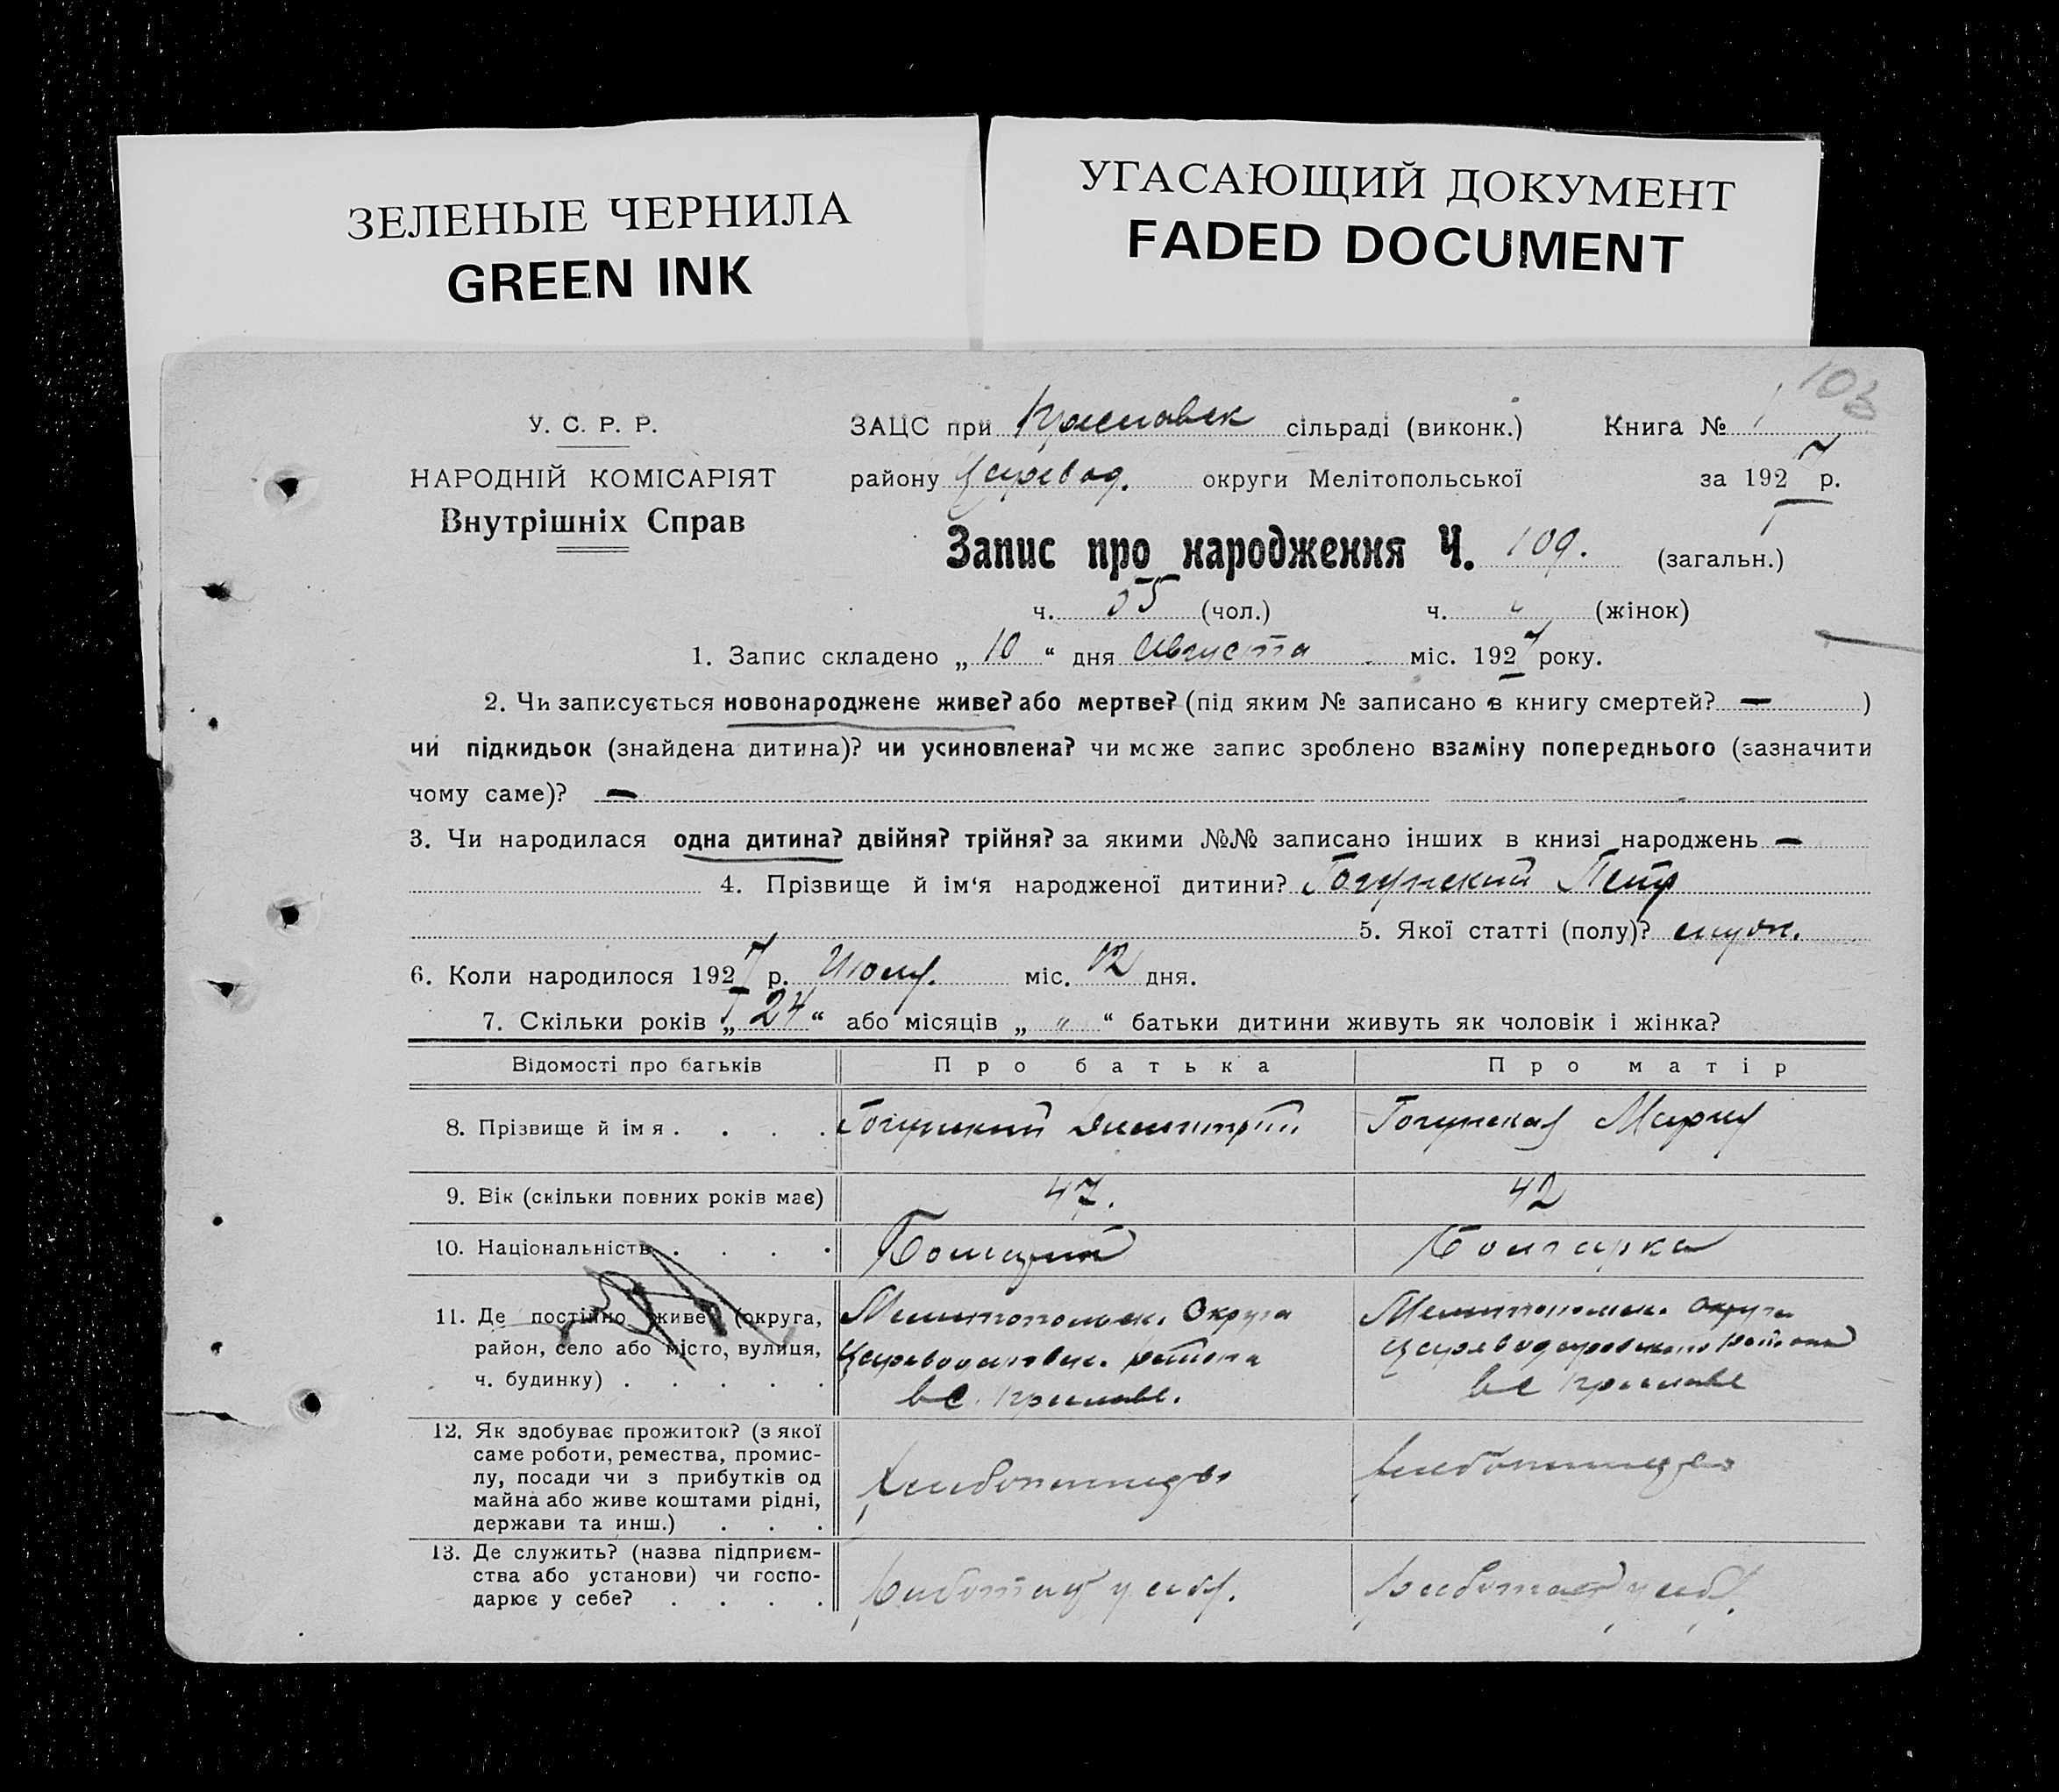 ЗЕЛЕНЫЕ ЧЕРНИЛА
GREEN INK
УГАСАЮЩИЙ ДОКУМЕНТ
FADED DOCUMENT
103
У. С. Р. Р.
НАРОДНІЙ КОМІСАРІЯТ
Внутрішніх Справ
ЗАЦС при сільраді (виконк.) Книга № 1
району Царевод. округи Мелітопольської за 1927 р.
Запис про народження Ч. 109. (загальн.)
ч. 55 (чол.) ч. " (жінок)
1. Запис складено „ 10 “ дня Августа міс. 1927 року.
2. Чи записується новонароджене живе? або мертве? (під яким № записано в книгу смертей? — )
чи підкидьок (знайдена дитина)? чи усиновлена? чи може запис зроблено взаміну попереднього (зазначити
чому саме)? —
3. Чи народилася одна дитина? двійня? трійня? за якими №№ записано інших в книзі народжень —
4. Прізвище й ім‘я народженої дитини? Петр
5. Якої статті (полу)? мужс.
6. Коли народилося 1927 р. Июля. міс. 12 дня.
7. Скільки років „ 24 “ або місяців „ " “ батьки дитини живуть як чоловік і жінка?
Відомості про батьків Про батька Про матір
8. Прізвище й імя . . . . Димитрий Мария
9. Вік (скільки повних років має) 47. 42
10. Національність . . . . Болгарин Болгарка
11. Де постійно живе? (округа, Мелитопольск. Округа Мелитопольск. округа
район, село або місто, вулиця, Цареводаровск. района Цареводаровского района
ч. будинку) . . . . .
12. Як здобуває прожиток? (з якої
саме роботи, ремества, промис-
лу, посади чи з прибутків од Хлебопашцев Хлебопашцев
майна або живе коштами рідні,
держави та инш.) . . .
13. Де служить? (назва підприєм-
ства або установи) чи госпо- у себя. у себя.
дарює у себе? . . . .